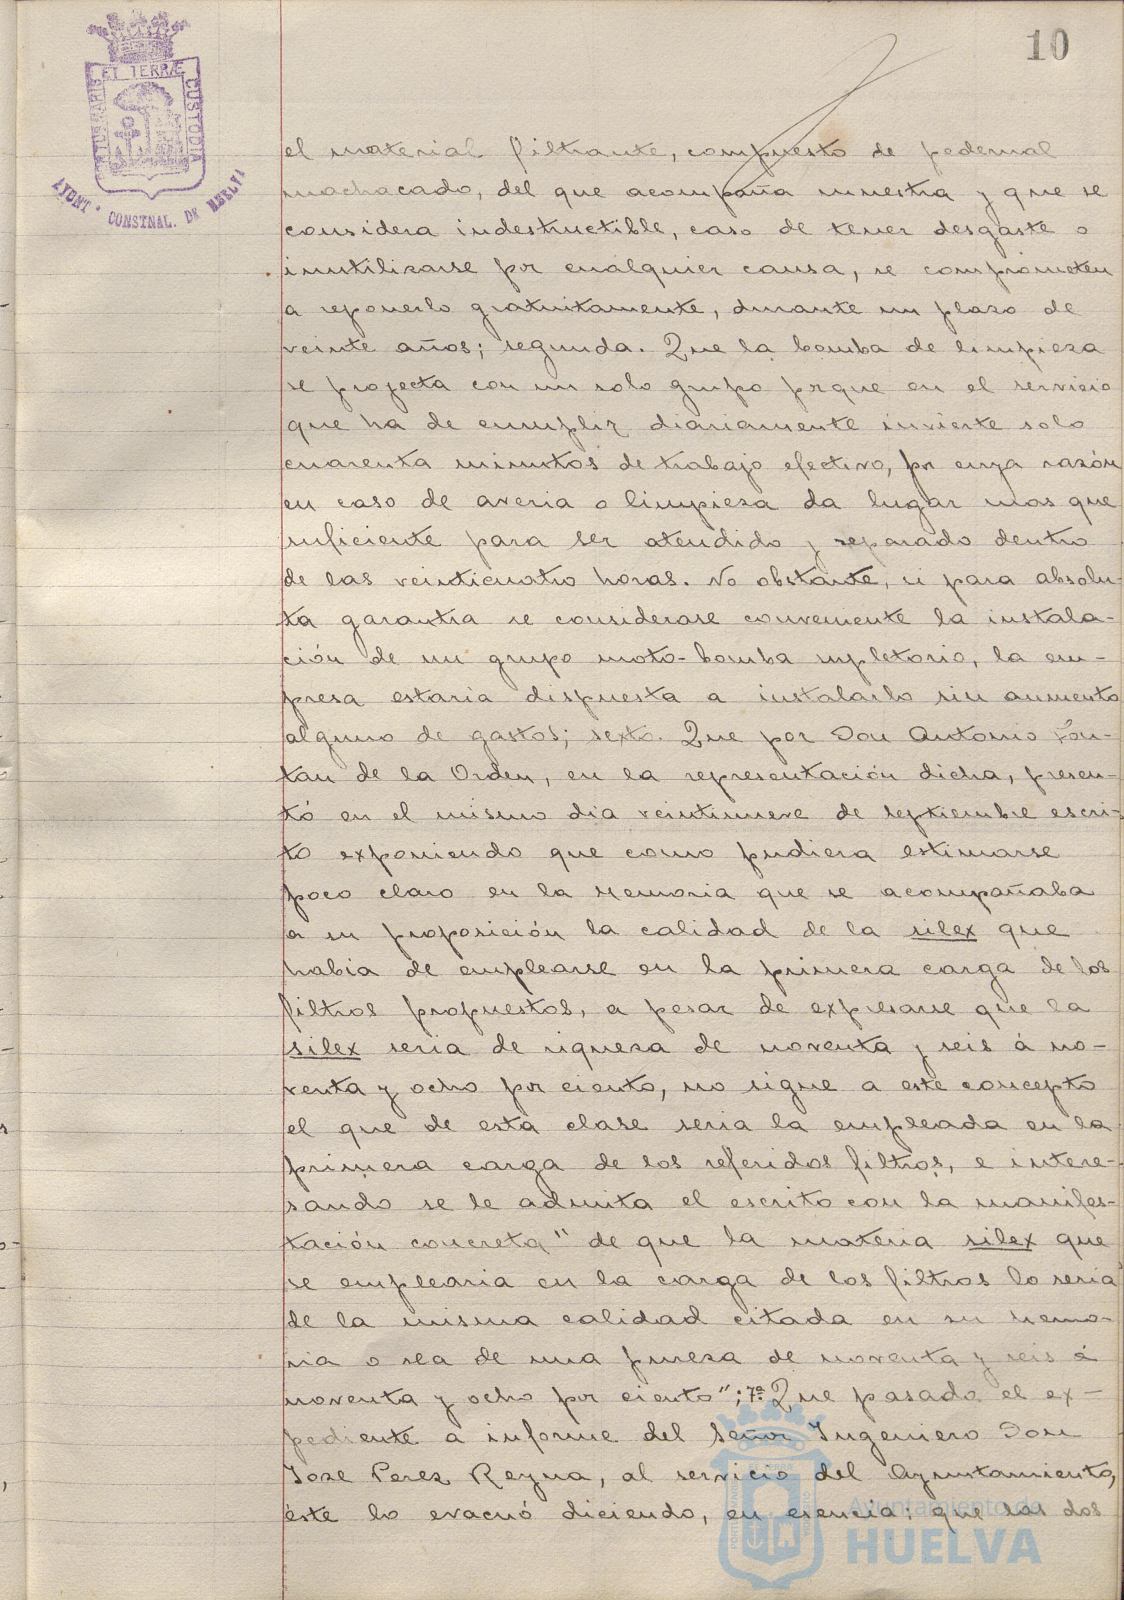 10
PORTUS MARIS ET TERRÆ CUSTODIA
AYONT. CONSTNAL. DE HUELVA
el material filtrante, compuesto de pedernal
machacado, del que acompaña muestra y que se
considera indestructible, caso de tener desgaste o
inutilizarse por cualquier causa, se comprometen
a reponerlo gratuitamente, durante un plazo de
veinte años; segunda. Que la bomba de limpieza
se projecta con un solo grupo porque en el servicio
que ha de cumplir diariamente invierte solo
cuarenta minutos de trabajo efectivo, por cuya razón
en caso de averia o limpieza da lugar mas que
suficiente para ser atendido y reparado dentro
de las veinticuatro horas. No obstante, si para absolu-
ta garantia se considerase conveniente la instala-
ción de un grupo moto-bomba supletorio, la em-
presa estaria dispuesta a instalarlo sin aumento
alguno de gastos; sexto. Que por Don Antonio Fon-
tan de la Orden, en la representación dicha, presen-
tó en el mismo dia veintinueve de septiembre escri-
to exponiendo que como pudiera estimarse
poco claro en la Memoria que se acompañaba
a su proposición la calidad de la silex que
habia de emplearse en la primera carga de los
filtros propuestos, a pesar de expresarse que la
silex seria de riqueza de noventa y seis á no-
venta y ocho por ciento, no sigue a este concepto
el que de esta clase seria la empleada en la
primera carga de los referidos filtros, e intere-
sando se le admita el escrito con la manifes-
tación concreta " de que la materia silex que
se emplearia en la carga de los filtros lo seria
de la misma calidad citada en su Memo-
ria o sea de una pureza de noventa y seis á
noventa y ocho por ciento"; 7ª. Que pasado el ex-
pediente a informe del Señor Ingeniero Don
Jose Perez Reyna, al servicio del Ayuntamiento,
éste lo evacuó diciendo, en esencia: que las dos
Ayuntamiento de
HUELVA